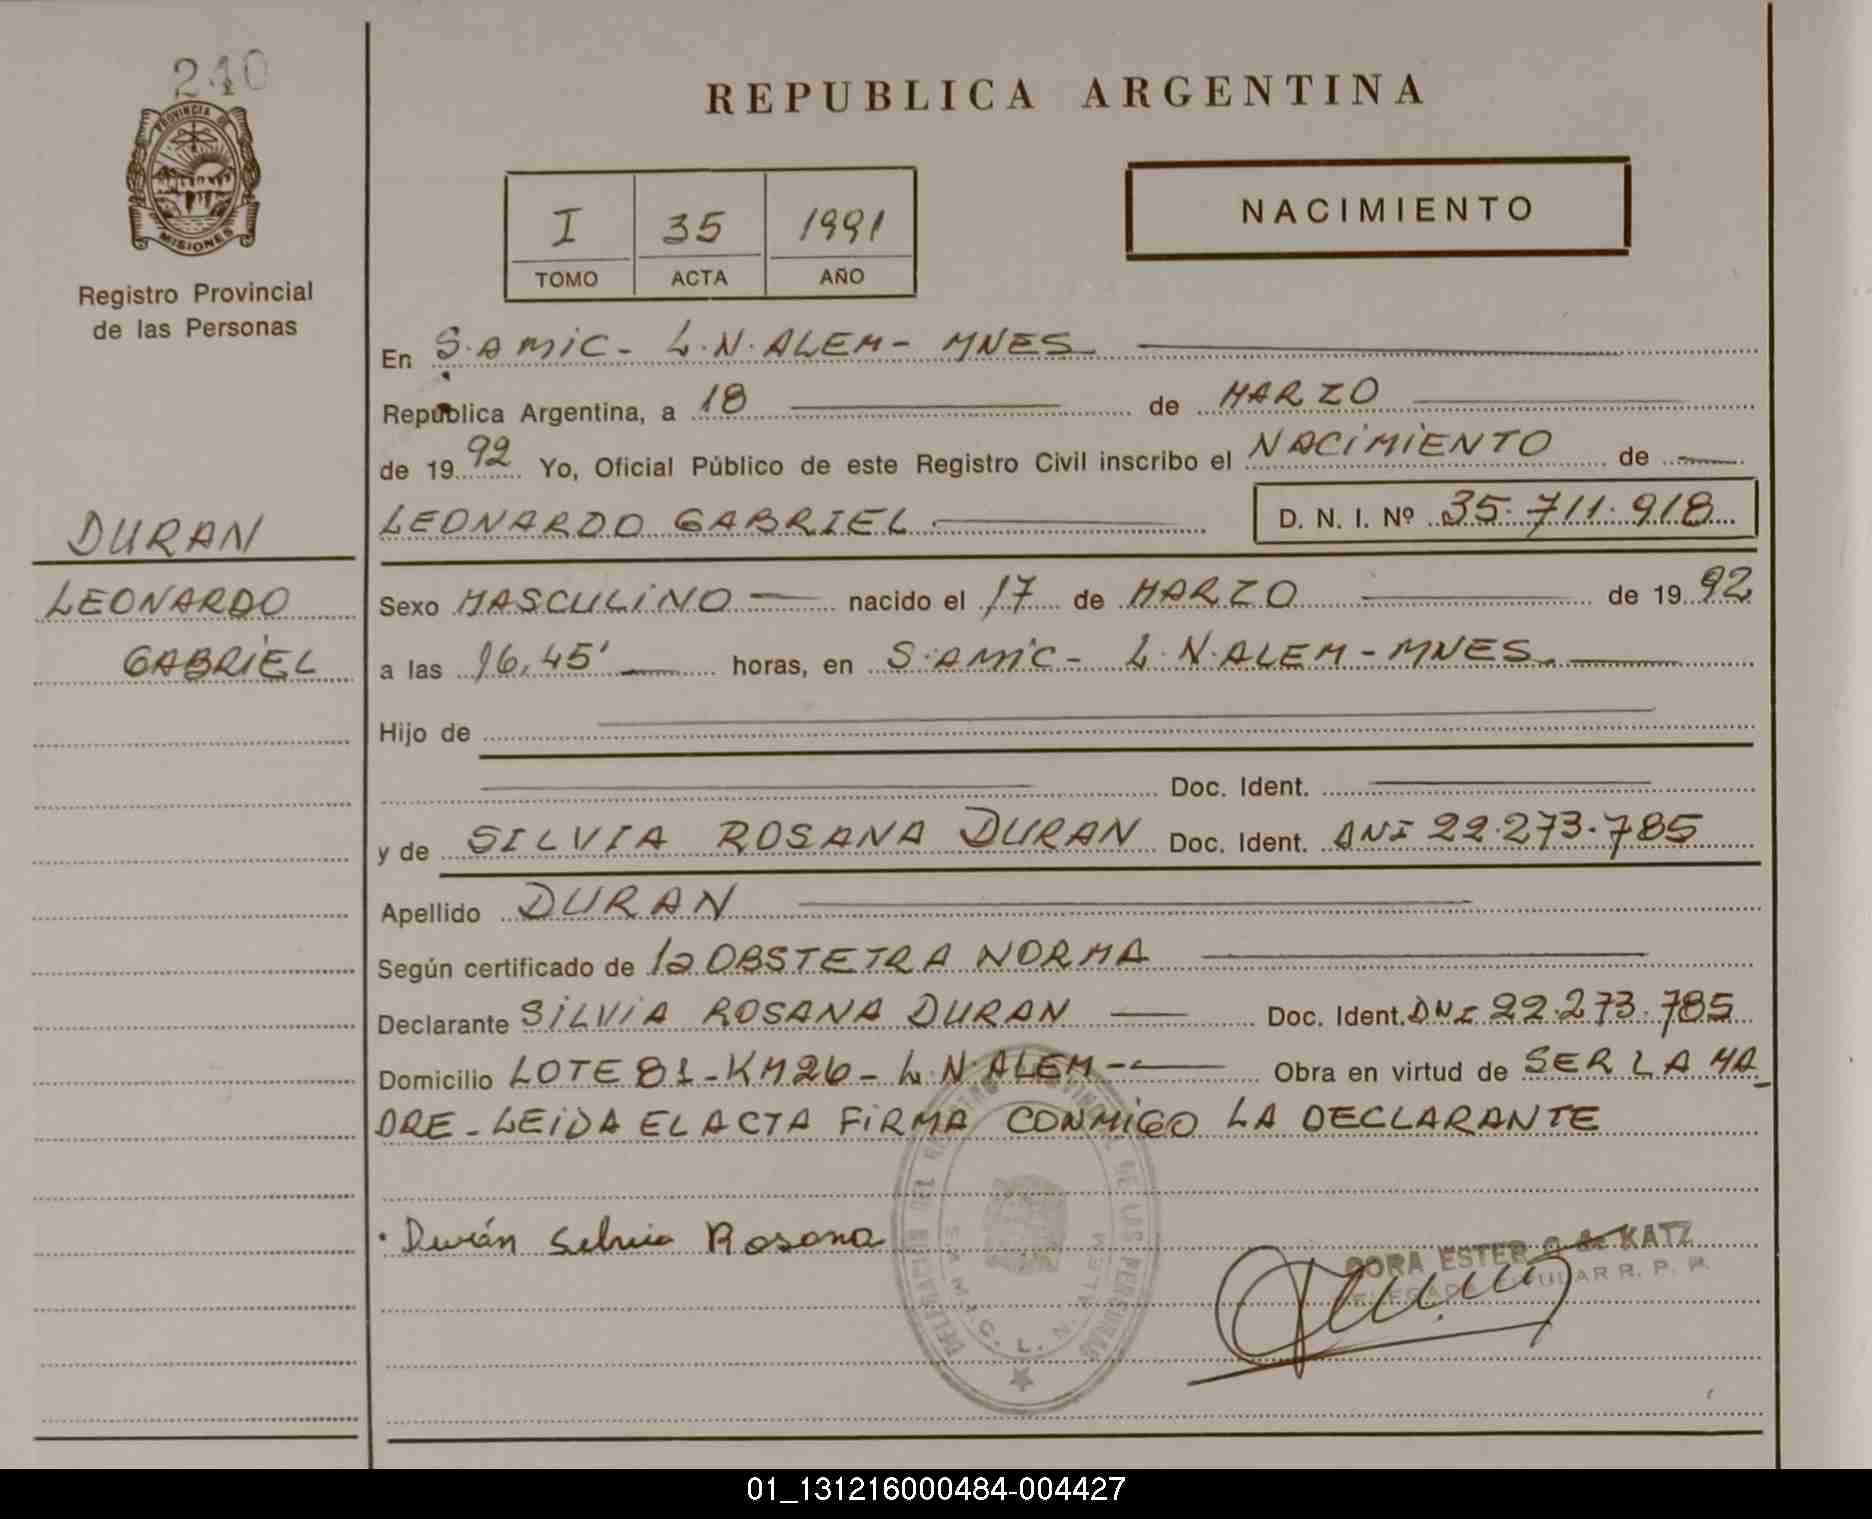 240
PROVINCIA DE
MISIONES
Registro Provincial
de las Personas
DURAN
LEONARDO
GABRIEL
REPUBLICA ARGENTINA
I 35 1991
TOMO ACTA AÑO
NACIMIENTO
En S.AMIC- L.N.ALEM- MNES
República Argentina, a 18 de MARZO
de 1992 Yo, Oficial Público de este Registro Civil inscribo el NACIMIENTO de
LEONARDO GABRIEL D. N. I. Nº 35.711.918
Sexo MASCULINO nacido el 17 de MARZO de 1992
a las 16,45' horas, en S.AMIC- L.N.ALEM-MNES
Hijo de
Doc. Ident.
y de SILVIA ROSANA DURAN Doc. Ident. DNI 22.273.785
Apellido DURAN
Según certificado de la OBSTETRA NORMA
Declarante SILVIA ROSANA DURAN Doc. Ident. DNI 22.273.785
Domicilio LOTE 81-KM26-L.N.ALEM- Obra en virtud de SER LA MA_
DRE-LEIDA EL ACTA FIRMA CONMIGO LA DECLARANTE
Durán Silvia Rosana
DORA ESTER KATZ
DELEGADA TITULAR R. P. P.
DE LAS PERSONAS
L. N. ALEM
01_131216000484-004427